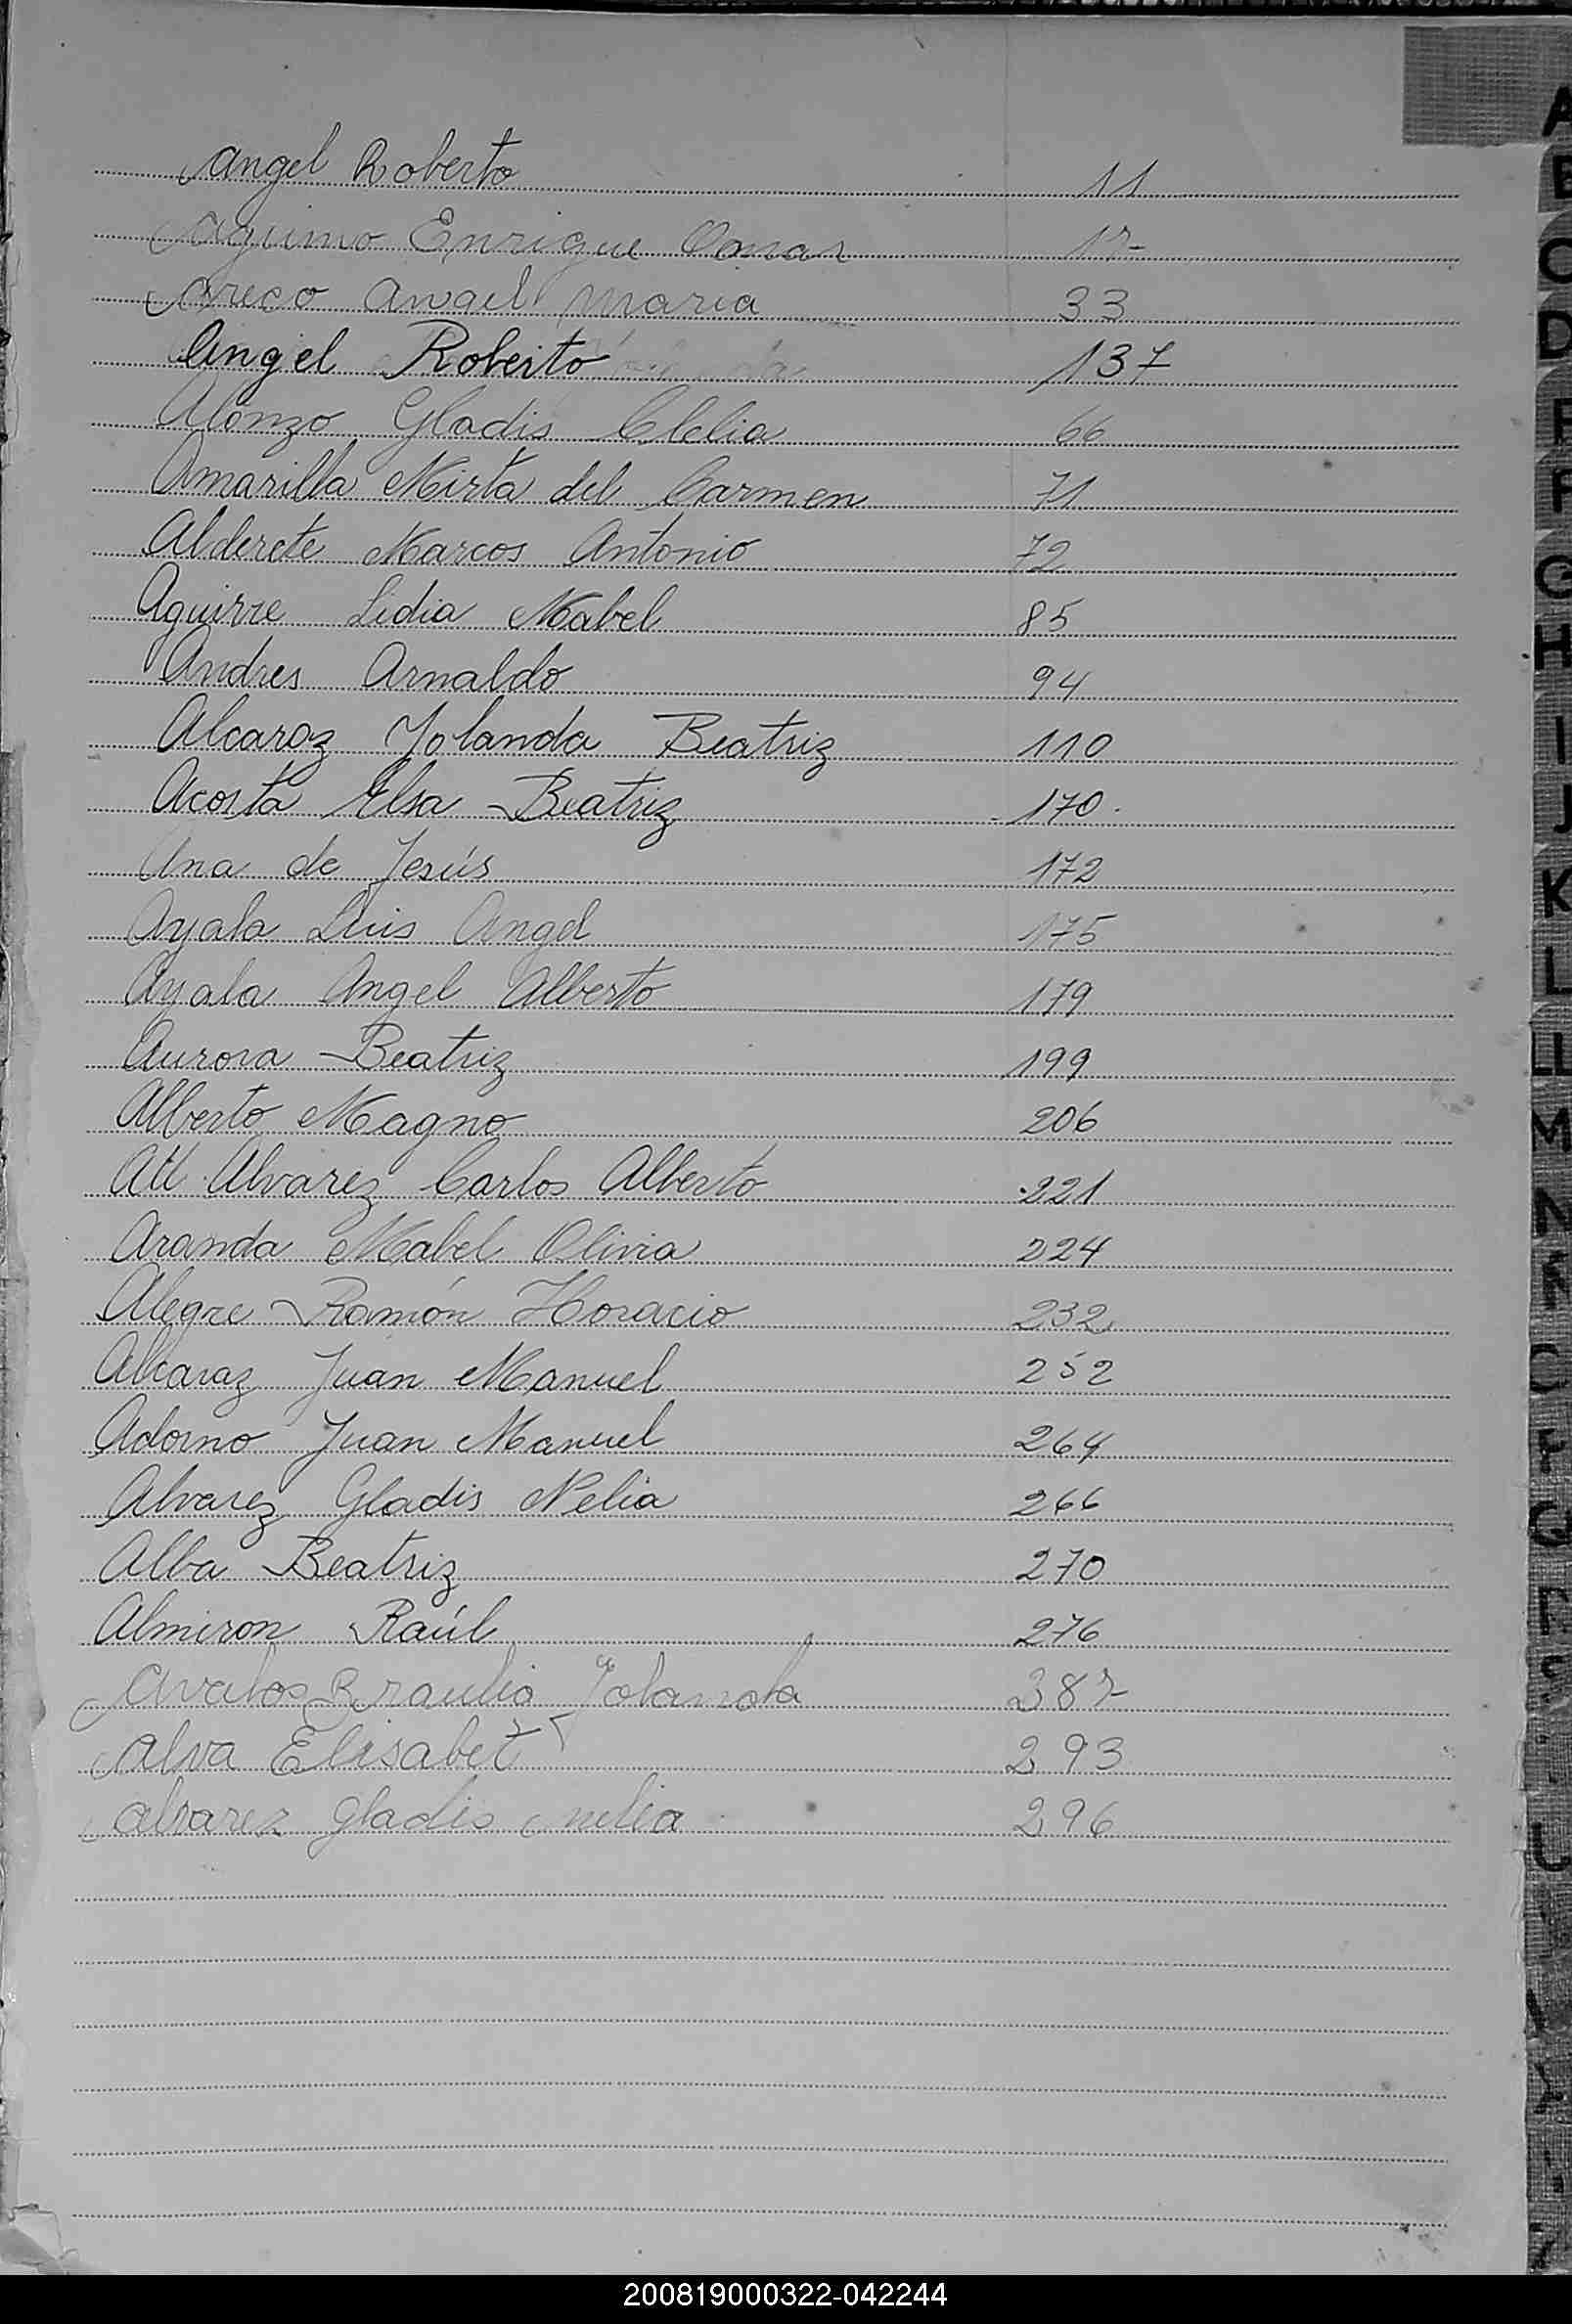 Angel Roberto 11
Aquino Enrique Omar 17
Areco Angel Maria 33
Angel Roberto 137
Alonzo Gladis Clelia 66
Amarilla Mirta del Carmen 71
Alderete Marcos Antonio 72
Aguirre Lidia Mabel 85
Andres Arnaldo 94
Alcaraz Yolanda Beatriz 110
Acosta Elsa Beatriz 170
Ana de Jesús 172
Ayala Luis Angel 175
Ayala Angel Alberto 179
Aurora Beatriz 199
Alberto Magno 206
Alvarez Carlos Alberto 221
Aranda Mabel Olivia 224
Alegre Ramón Horacio 232
Alcaraz Juan Manuel 252
Adorno Juan Manuel 264
Alvarez Gladis Nelia 266
Alba Beatriz 270
Almiron Raúl 276
Avalos Braulia Yolanda 387
Alva Elisabet 293
alvarez gladis nelia 296
A
B
C
D
E
F
G
H
I
J
K
L
LL
M
N
Ñ
O
P
Q
R
S
U
200819000322-042244